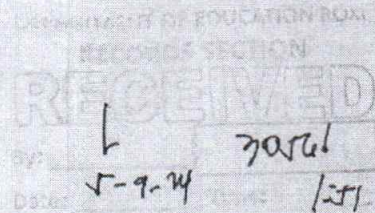 DEPARTMENT OF EDUCATION
RECORDS SECTION
RECEIVED
By: 30561
Date: 5-9-24 Time: 1:51